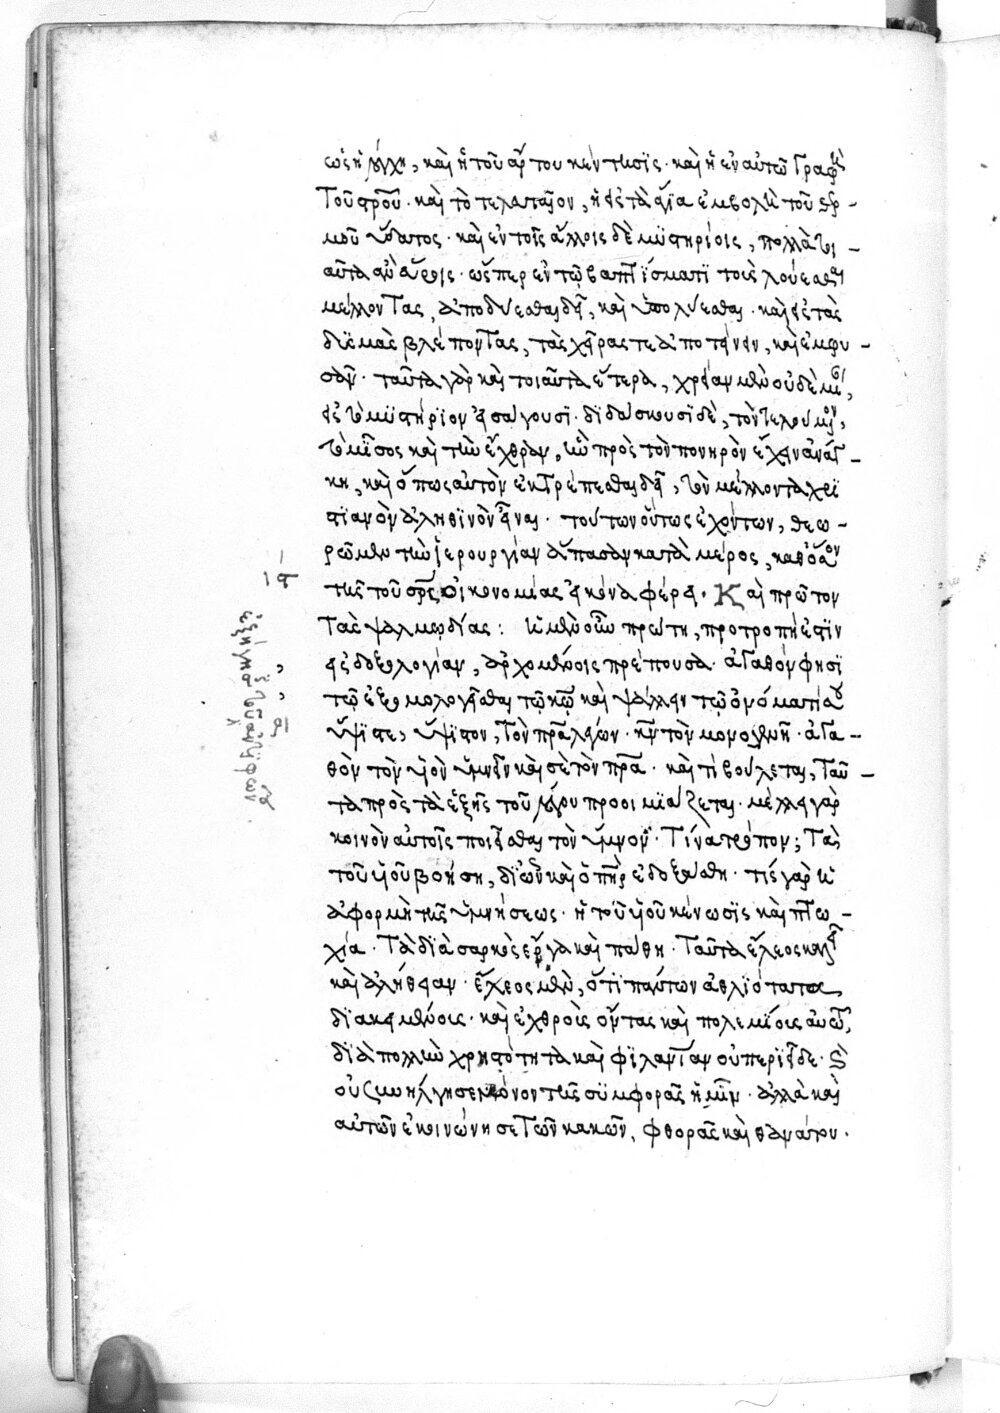 ὡς ἡ λόγχη, καὶ ἡ τοῦ ἄρτου κέντησις· καὶ ἡ ἐν αὐτῷ γραφὴ
τοῦ σ̅ρ̅ο̅ῦ· καὶ τὸ τελευταῖον, ἡ εἰς τὰ ἅγια ἐμβολὴ τοῦ θερ-
μοῦ ὕδατος· καὶ ἐν τοῖς ἄλλοις δὲ μυστηρίοις, πολλὰ τοι-
αῦτα ἂν εὕροις· ὥσπερ ἐν τῷ βαπτίσματι τοὺς λούεσθαι
μέλλοντας, ἀποδύεσθαι δεῖ, καὶ ὑπολύεσθαι· καὶ εἰς τὰς
δυσμὰς βλέποντας, τὰς χεῖράς τε ἀποτείνειν, καὶ ἐμφυ-
σᾶν· ταῦτα γὰρ καὶ τοιαῦτα ἕτερα, χρείαν μὲν οὐδεμί,
εἰς τὸ μυστήριον εἰσάγουσι· διδάσκουσι δὲ, τὸν τελούμεν,
τὸ μῖσος καὶ τὴν ἔχθραν, ἣν πρὸς τὸν πονηρὸν ἔχειν ἀνάγ-
κη, καὶ ὅπως αὐτὸν ἐκτρέπεσθαι δεῖ, τὸν μέλλοντα χρι
στιανὸν ἀληθινὸν εἶναι. τούτων οὕτως ἐχόντων, θεω-
ρῶμεν τὴν ἱερουργίαν ἅπασαν κατὰ μέρος, καθόσον
τῆς τοῦ σ̅ρ̅ς οἰκονομίας εἰκόνα φέρει. Καὶ πρῶτον
τὰς ψαλμῳδίας: ἡ μὲν οὖν πρώτη, προτροπή ἐστιν
εἰς δοξολογίαν, ἀρχομένοις πρέπουσα. ἀγαθόν φησι
τῷ ἐξομολογεῖσθαι τῷ κ̅ω̅ καὶ ψάλλειν τῷ ὀνόματί σου
ὕψιστε, ὕψιστον, τὸν π̅ρ̅α λέγων· κ̅ν τὸν μονογενῆ· ἀγα-
θὸν τὸν υἱὸν ὑμνεῖν καὶ σὲ τὸν π̅ρ̅α· καὶ τί βούλεται, ταῦ-
τα πρὸς τὰ ἑξῆς τοῦ λόγου προοιμιάζεται· μέλλει γὰρ
κοινὸν αὐτοῖς ποιεῖσθαι τὸν ὕμνον· τίνα τρόπον; τὰς
τοῦ υἱοῦ βοήσῃ, δι' ὧν καὶ ὁ π̅η̅ρ ἐδοξάσθη· τίς γὰρ ἡ
ἀφορμὴ τῆς ὑμνήσεως· ἡ τοῦ υἱοῦ κένωσις καὶ πτω-
χία· τὰ διὰ σαρκὸς ἔργα καὶ πάθη· ταῦτα ἔλεος καλεῖ
καὶ ἀλήθειαν· ἔλεος μὲν, ὅτι πάντων ἀθλιότατα
διακειμένους· καὶ ἐχθροὺς ὄντας καὶ πολεμίους αὐτῷ,
διὰ πολλὴν χρηστότητα καὶ φιλανίαν οὐ περιεῖδε· καὶ
οὐ συνήλγησε μόνον τῆς συμφορᾶς ἡμῖν· ἀλλὰ καὶ
αὐτῶν ἐκοινώνησε τῶν κακῶν, φθορᾶς καὶ θανάτου.